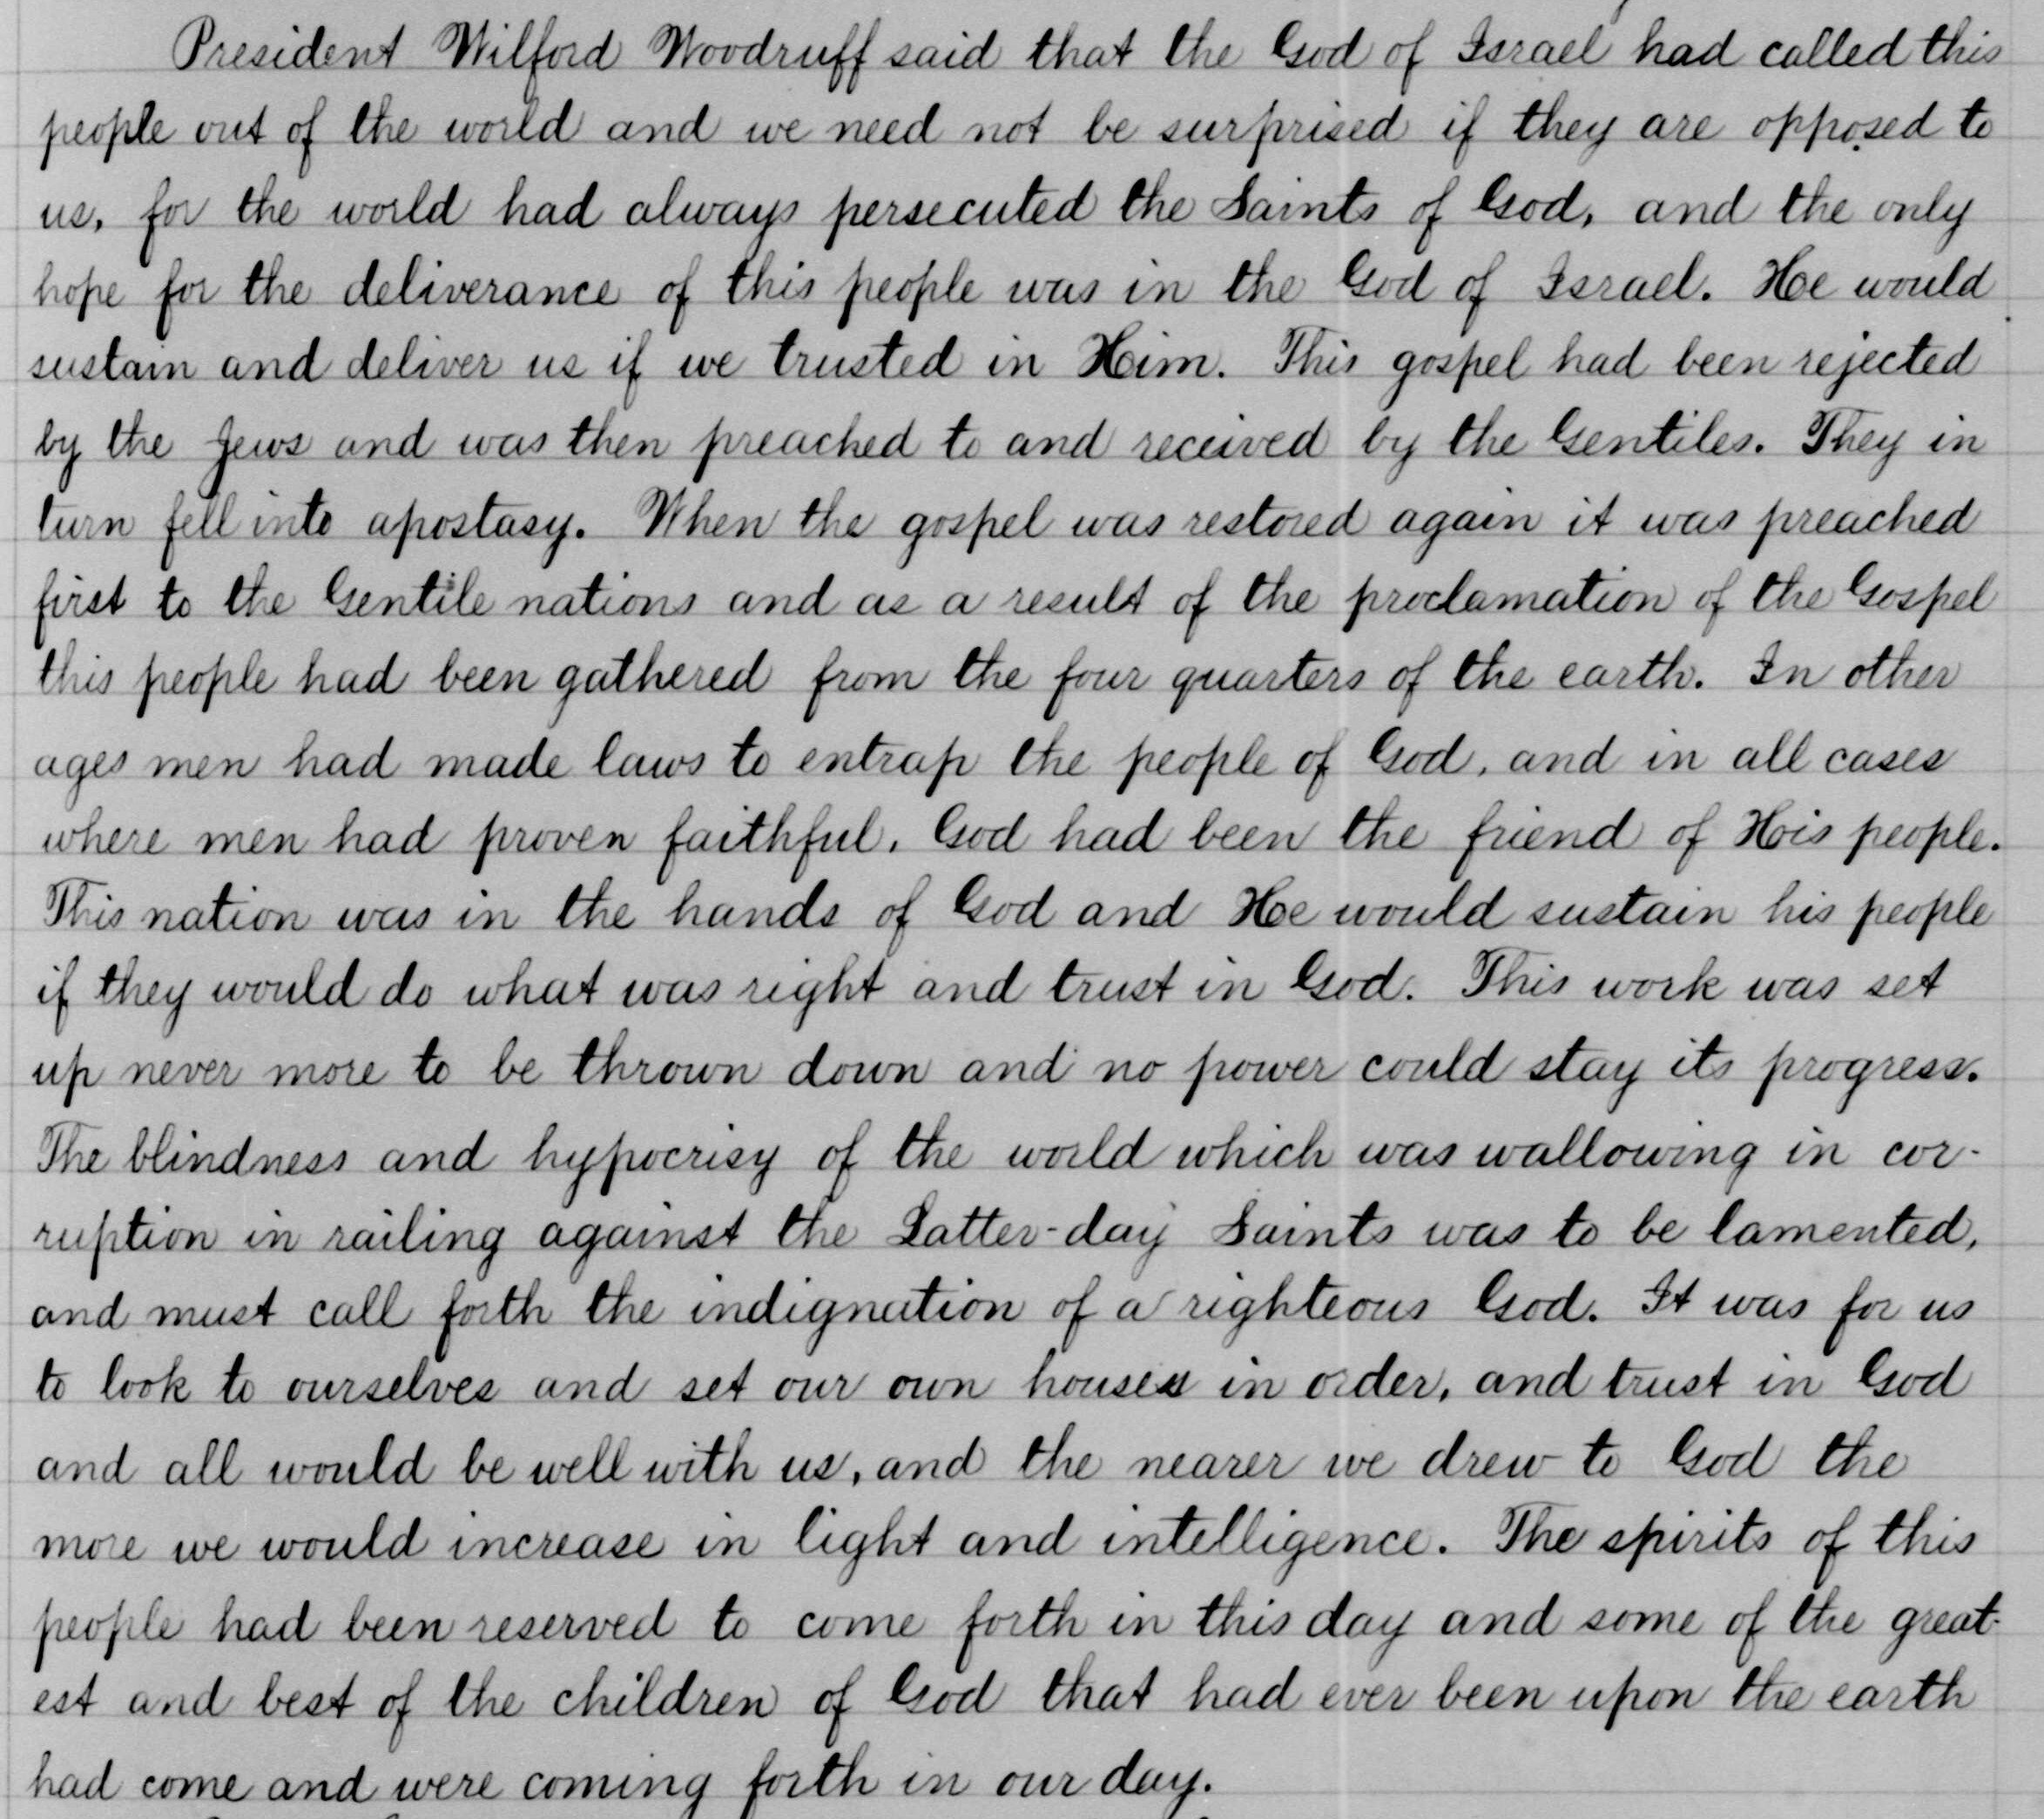 President Wilford Woodruff said that the God of Israel had called this
people out of the world and we need not be surprised if they are opposed to
us, for the world had always persecuted the Saints of God, and the only
hope for the deliverance of this people was in the God of Israel. He would
sustain and deliver us if we trusted in Him. This gospel had been rejected
by the Jews and was then preached to and received by the Gentiles. They in
turn fell into apostasy. When the gospel was restored again it was preached
first to the Gentile nations and as a result of the proclamation of the Gospel
this people had been gathered from the four quarters of the earth. In other
ages men had made laws to entrap the people of God, and in all cases
where men had proven faithful, God had been the friend of His people.
This nation was in the hands of God and He would sustain his people
if they would do what was right and trust in God. This work was set
up never more to be thrown down and no power could stay its progress.
The blindness and hypocrisy of the world which was wallowing in cor-
ruption in railing against the Latter-day Saints was to be lamented,
and must call forth the indignation of a righteous God. It was for us
to look to ourselves and set our own houses in order, and trust in God
and all would be well with us, and the nearer we drew to God the
more we would increase in light and intelligence. The spirits of this
people had been reserved to come forth in this day and some of the great-
est and best of the children of God that had ever been upon the earth
had come and were coming forth in our day.